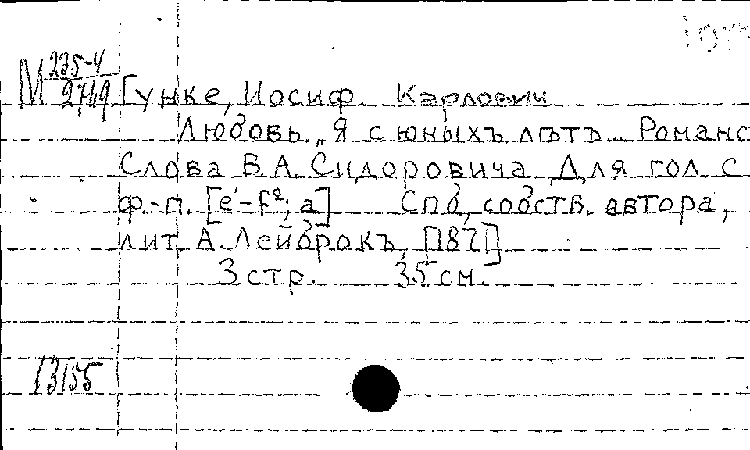 М 235-4
2749 Гунке, Иосиф Карлович
Любовь. „Я с юныхъ лѣтъ... Романс
Слова В.А. Сидоровича Для гол с
ф.-п. [e'-f²; a] Спб, собств. автора,
лит. А. Лейброкъ, [187]
3 стр. 35 см.
13155